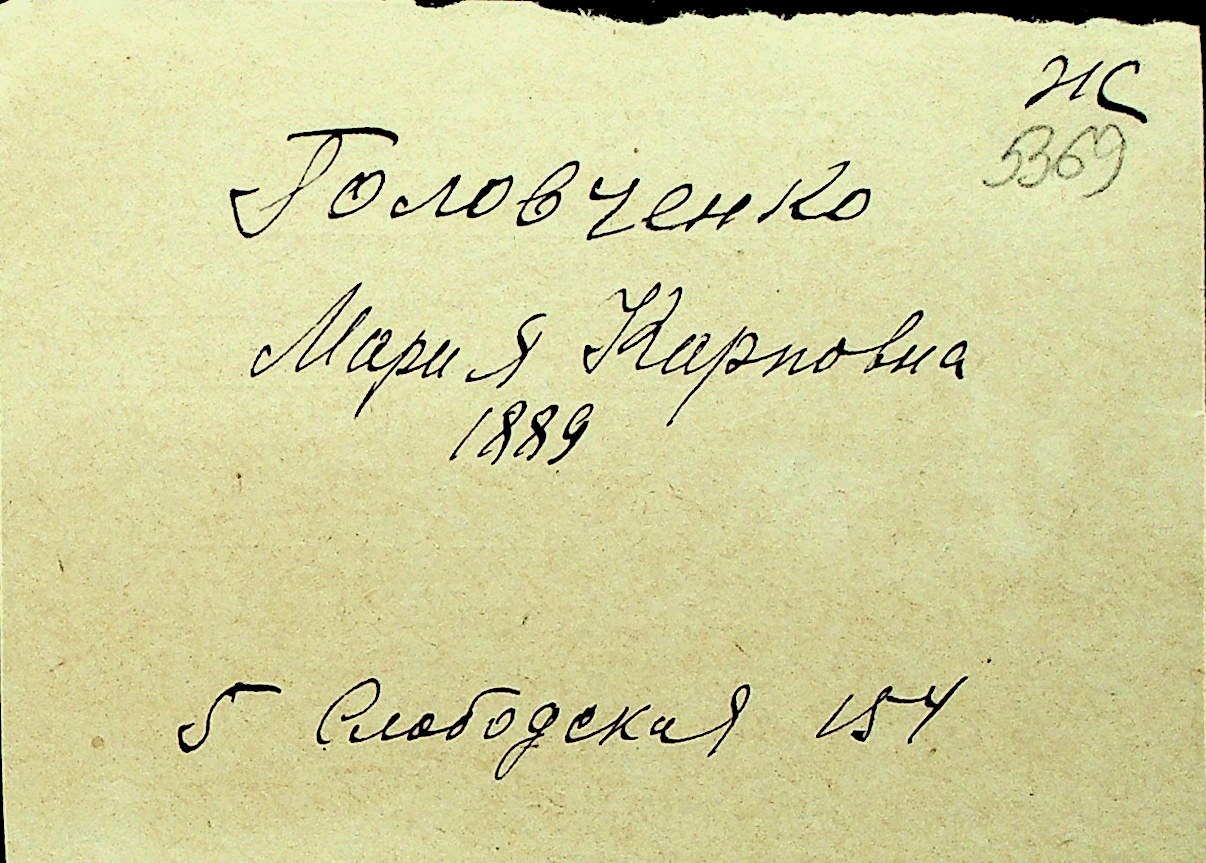 ЖС
5369
Головченко
Мария Карповна
1889
5 Слободская 154